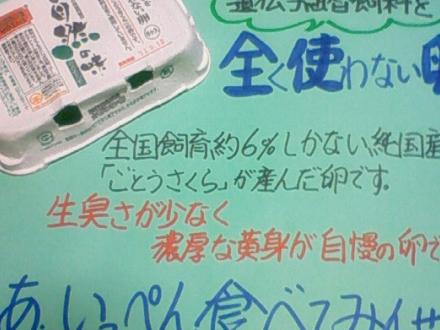 自然の味
遺伝子組替飼料を
全く使わない
全国飼育約6%しかない、純国産
「ごとうさくら」が産んだ卵です。
生臭さが少なく
濃厚な黄身が自慢の卵で
あ、いっぺん食べてみイ